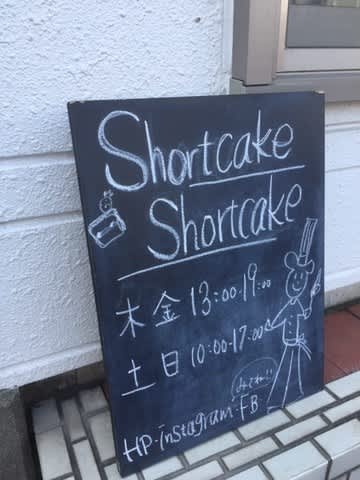 Shortcake
Shortcake
木金 13:00-19:00
土日 10:00-17:00
みてネ!!
HP・instagram・FB